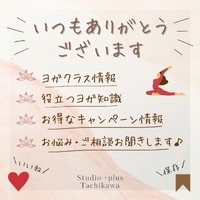 いつもありがとう
ございます
ヨガクラス情報
役立つヨガ知識
お得なキャンペーン情報
お悩み・ご相談お聞きします♪
いいね
保存
Studio +plus
Tachikawa